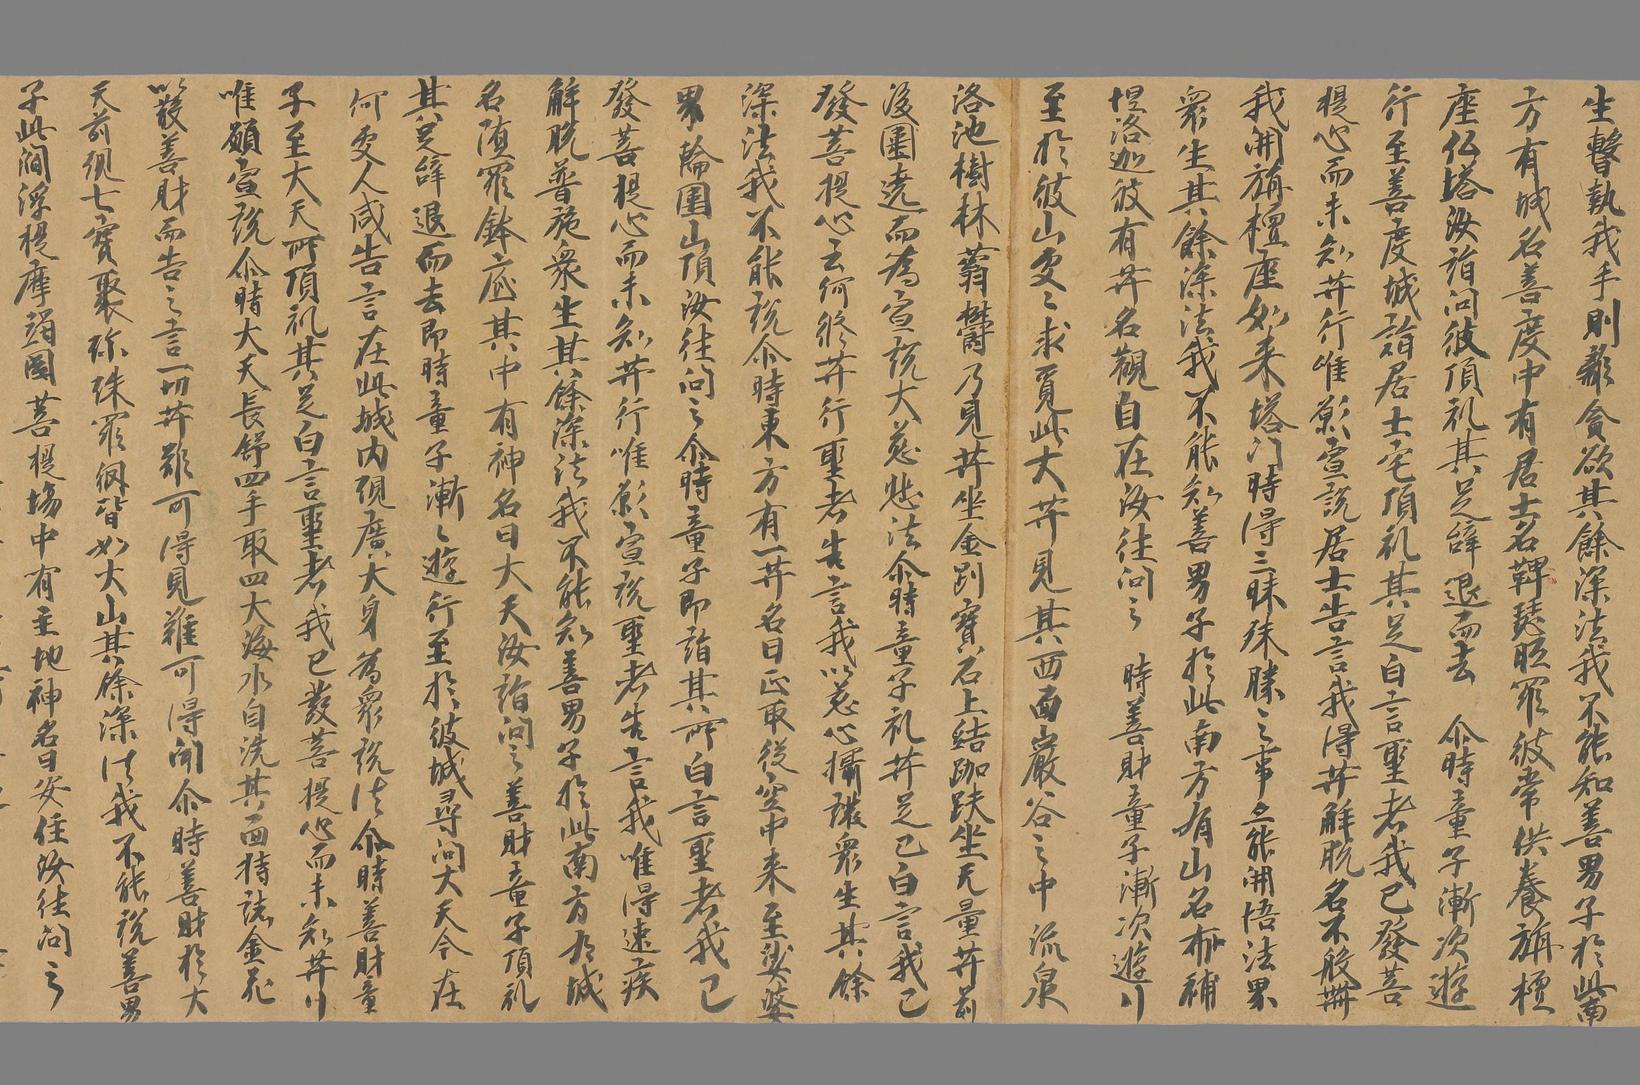 生瞖執我手則離貪欲其餘深法我不能知善男子於此南
方有城名善度中有居士名鞞瑟胝羅彼常供養旃檀
座仏塔汝詣問彼頂礼其足辞退而去　尒時童子漸次遊
行至善度城詣居士宅頂礼其足白言聖者我已發菩
提心而未知井行唯願宣說居士告言我得井解脫名不般涅槃
我開旃檀座如来塔門時得三昧殊勝之事亦能開悟法界
衆生其餘深法我不能知善男子於此南方有山名補
怛洛迦彼有井名觀自在汝往問之　時善財童子漸次遊行
至於彼山處〻求覓此大井見其西南巖谷之中流泉
洛池樹林蓊欝乃見井坐金剛寶石上結跏趺坐无量井前
後圍遶而為宣說大慈悲法尒時童子礼井足已白言我已
發菩提心云何修井行聖者告言我以慈心攝諸衆生其餘
深法我不能說尒時東方有一井名曰正取從空中来至娑婆
界輪圍山頂汝往問之尒時童子即詣其所白言聖者我已
發菩提心而未知井行唯願宣說聖者告言我唯得速疾
解脫普施衆生其餘深法我不能知善男子於此南方有城
名墮羅鉢底其中有神名曰大天汝詣問之善財童子頂礼
其足辞退而去即時童子漸〻遊行至於彼城尋問大天今在
何處人咸告言在此城内現廣大身為衆說法尒時善財童
子至大天所頂礼其足白言聖者我已發菩提心而未知井行
唯願宣說尒時大天長舒四手取四大海水自洗其面持諸金花
以散善財而告之言一切井難可得見難可得聞尒時善財於大
天前現七寶聚珎珠羅網皆如大山其餘深法我不能說善男
子此閻浮提摩竭國菩提場中有主地神名曰安住汝往問之